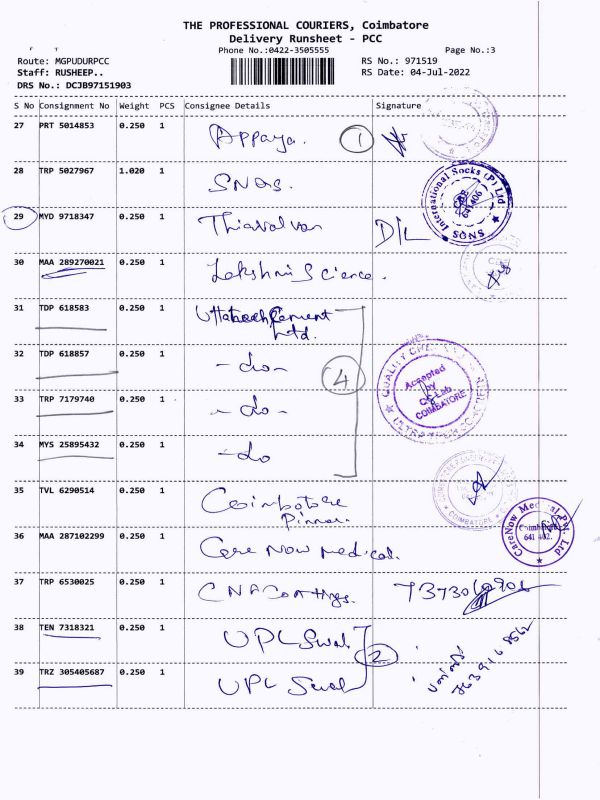 THE PROFESSIONAL COURIERS, Coimbatore
Delivery Runsheet - PCC
Phone No.:0422-3505555 Page No.:3
Route: MGPUDURPCC RS No.: 971519
Staff: RUSHEEP.. RS Date: 04-Jul-2022
DRS No.: DCJB97151903
S No Consignment No Weight PCS Consignee Details Signature
27 PRT 5014853 0.250 1 Appaya. 1
28 TRP 5027967 1.020 1 SNQS. International Socks (P) Ltd SONS
29 MYD 9718347 0.250 1 Thiavalvar D/L
30 MAA 289270021 0.250 1 Lakshmi Science.
31 TDP 618583 0.250 1 Cement
Ltd.
32 TDP 618857 0.250 1 -do- 4 Accepted by COIMBATORE
33 TRP 7179740 0.250 1 -do-
34 MYS 25895432 0.250 1 -do
35 TVL 6290514 0.250 1 Coimbatore COIMBATORE
36 MAA 287102299 0.250 1 Care Now medical. CareNow Medical Pvt. Ltd Coimbatore 641 402.
37 TRP 6530025 0.250 1 CNA Coatings.
38 TEN 7318321 0.250 1 UPL Swal 2
39 TRZ 305405687 0.250 1 UPL Swal